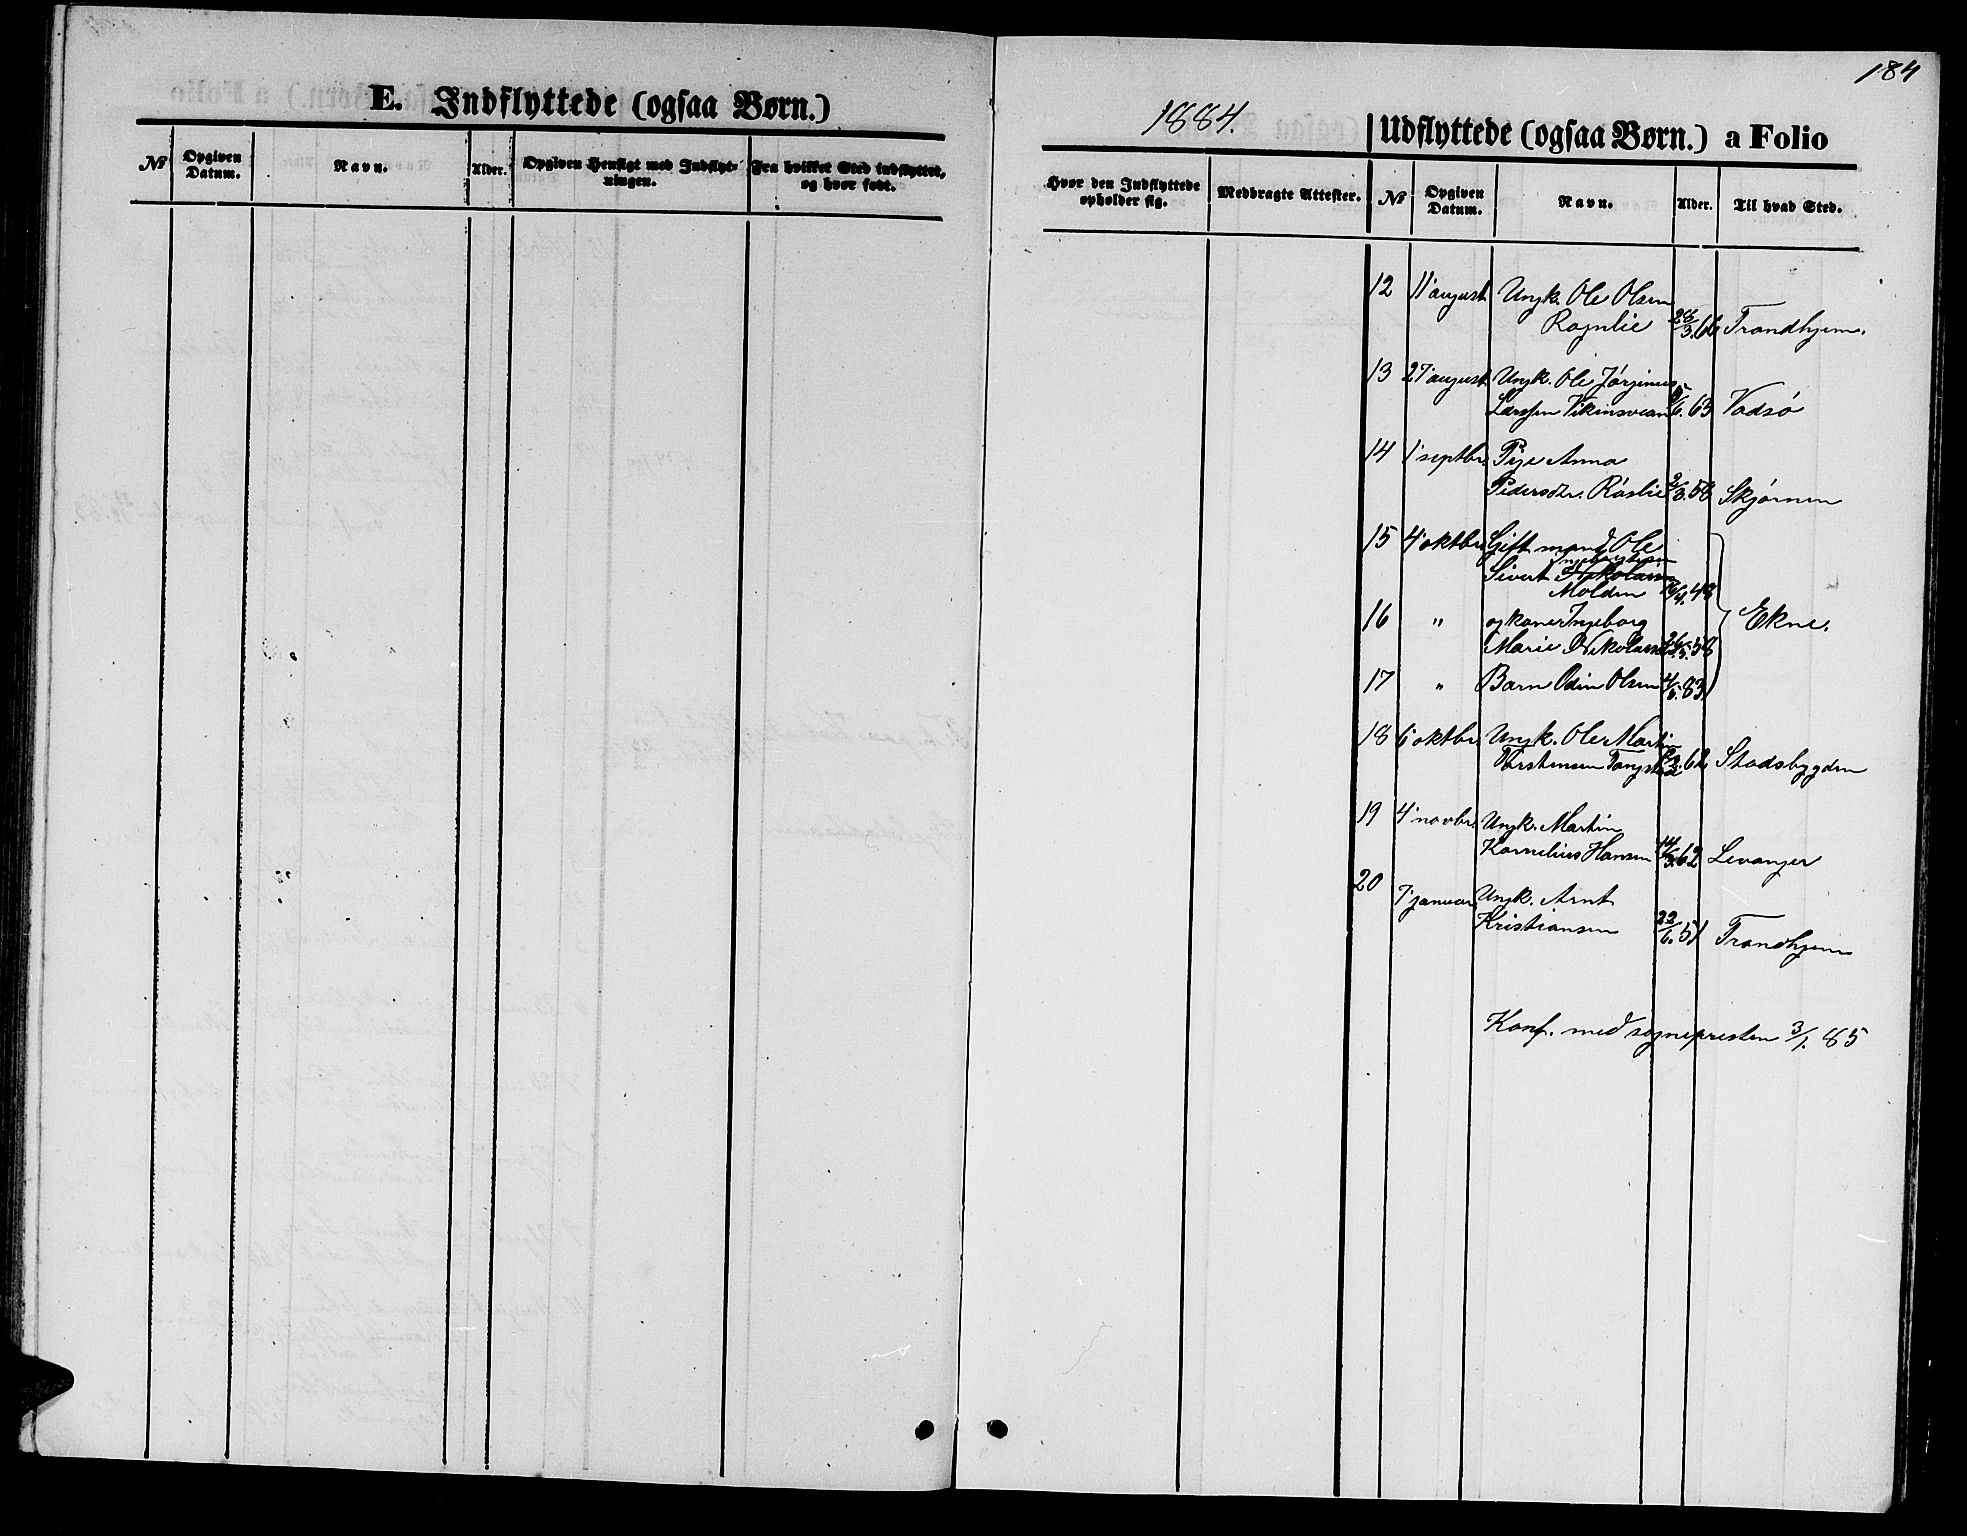 184
E. Indflyttede (ogsaa Børn.)
1884.
Udflyttede (ogsaa Børn.) a Folio
No
Opgiven Datum.
Navn.
Alder.
Opgiven Hensigt med Indflyt-
ningen.
Fra hvilket Sted indflyttet,
og hvor født.
Hvor den Indflyttede
opholder sig.
Medbragte Attester.
No
Opgiven Datum.
Navn.
Alder.
Til hvad Sted.
12 11' august Ungk. Ole Olsen
Rognlie 28/3.66 Trondhjem.
13 27' august Ungk. Ole Jørginus
Larssen Vikinsvean /6.63 Vadsø
14 1' septbr. Pige Anna
Pedersdtr. Røslie 2/3.58 Skjørnen
15 4' oktbr. Gift mand Ole
Sivert Nikolaisen
Molden 16/4.43
16 " og kone Ingeborg
Marie Nikolaisd. 26/5.58 Ekne.
17 " Barn Odin Olsen 4/5.83
18 6' oktbr. Ungk. Ole Martin
Torstensen Tangstad /2.62 Stadsbygden
19 4' novbr. Ungk. Martin
Kornelius Hansen 14/3.62 Levanger
20 7' januar Ungk. Arnt
Kristiansen 22/6.51 Trondhjem
Konf. med sognepresten 3/1. 85